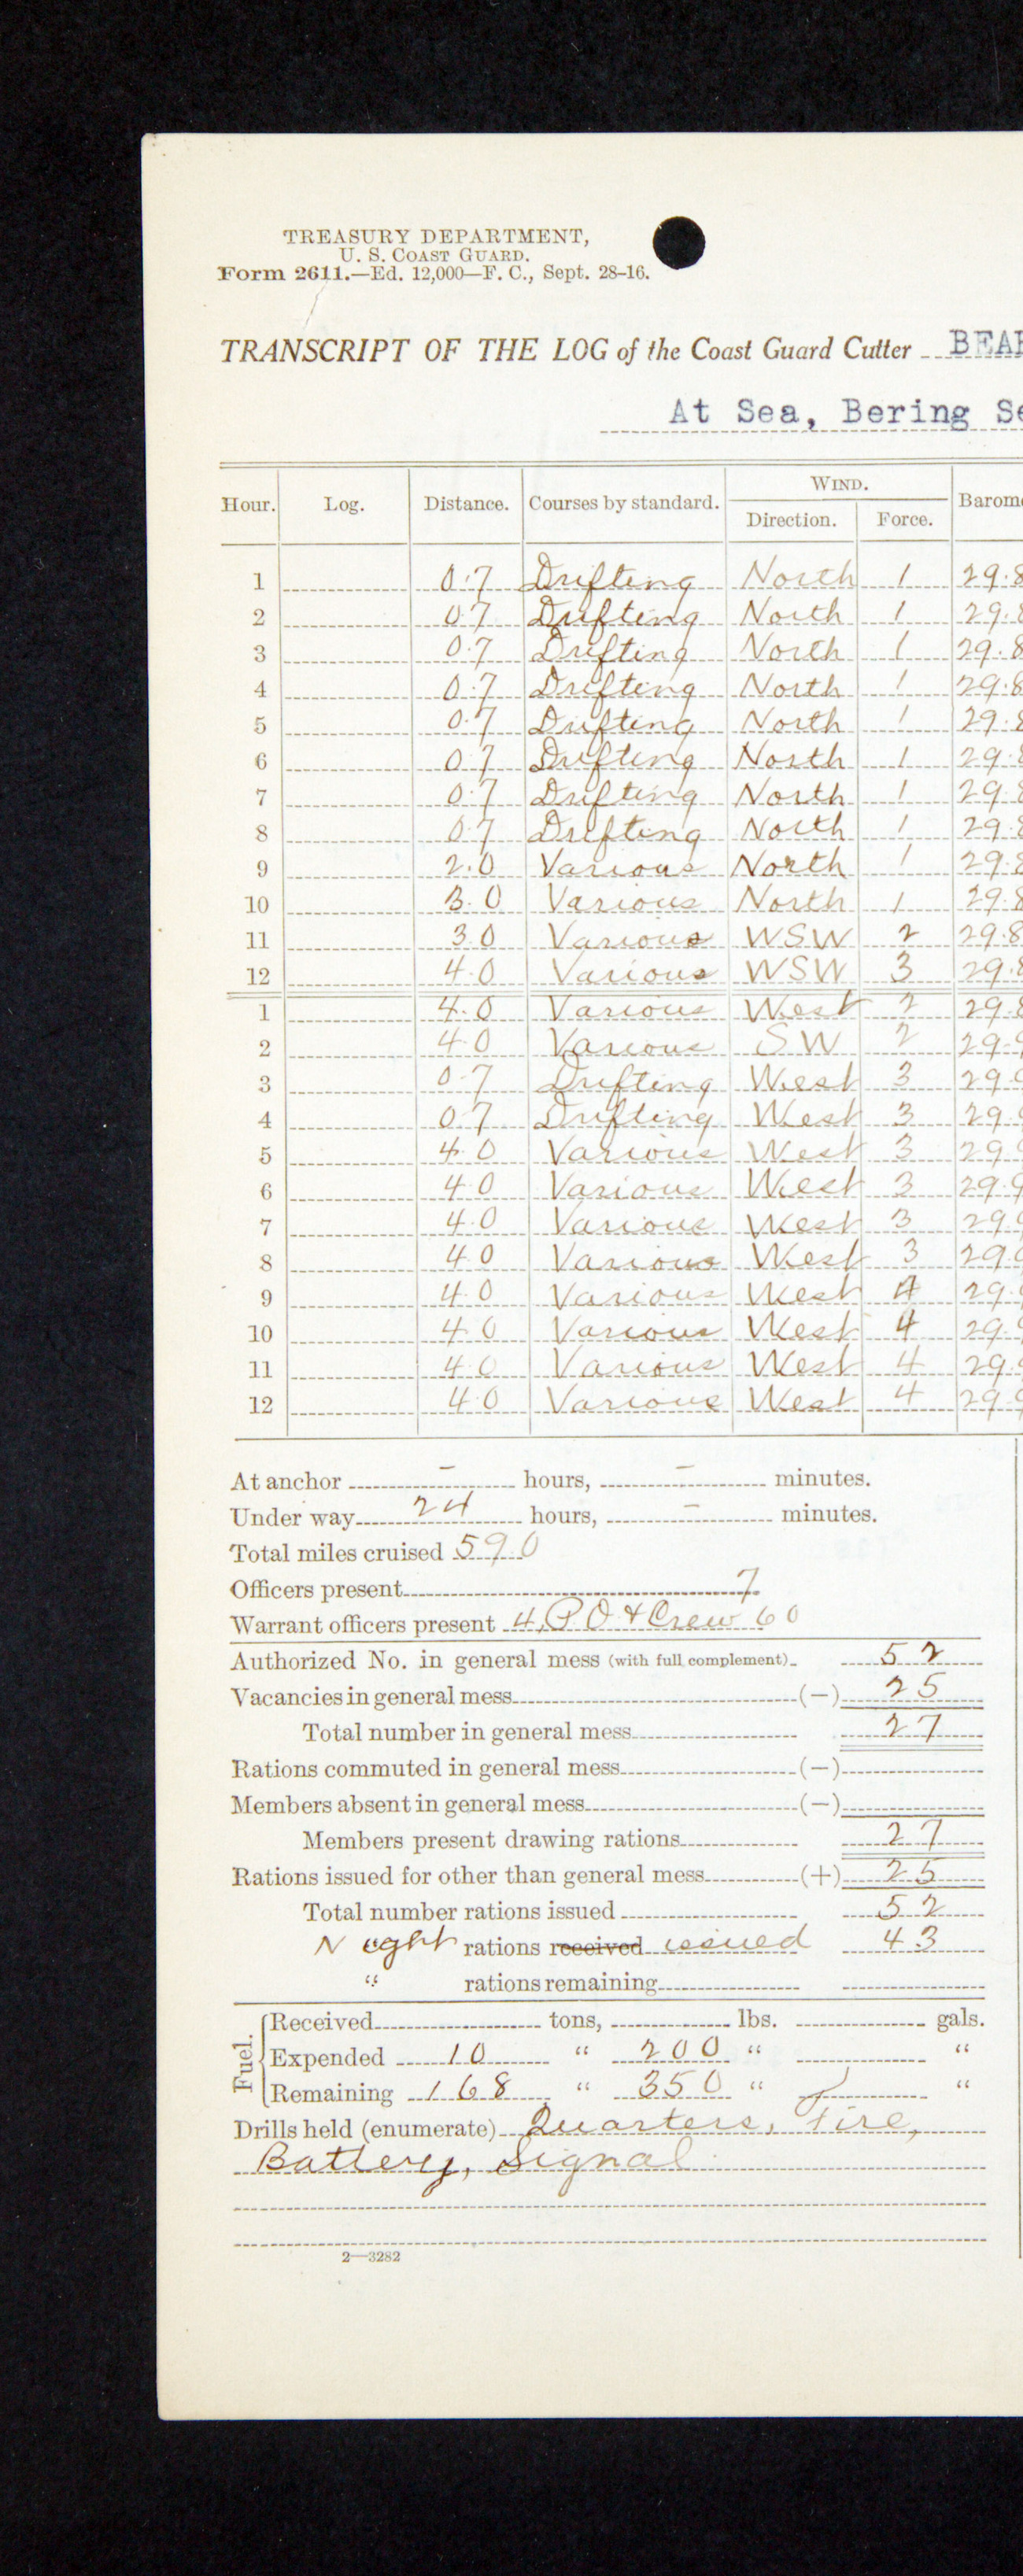 TREASURY DEPARTMENT,
U. S. COAST GUARD.
Form 2611.—Ed. 12,000—F. C., Sept. 28-16.
TRANSCRIPT OF THE LOG of the Coast Guard Cutter BEA
At Sea, Bering Se
Hour. Log. Distance. Courses by standard. WIND. Direction. Force. Barome
1 0.7 Drifting North 1 29.8
2 0.7 Drifting North 1 29.8
3 0.7 Drifting North 1 29.8
4 0.7 Drifting North 1 29.8
5 0.7 Drifting North 1 29.8
6 0.7 Drifting North 1 29.8
7 0.7 Drifting North 1 29.8
8 0.7 Drifting North 1 29.8
9 2.0 Various North 1 29.8
10 3.0 Various North 1 29.8
11 3.0 Various WSW 2 29.8
12 4.0 Various WSW 3 29.8
1 4.0 Various West 2 29.8
2 4.0 Various SW 2 29.9
3 0.7 Drifting West 3 29.9
4 0.7 Drifting West 3 29.9
5 4.0 Various West 3 29.9
6 4.0 Various West 3 29.9
7 4.0 Various West 3 29.9
8 4.0 Various West 3 29.9
9 4.0 Various West 4 29.9
10 4.0 Various West 4 29.9
11 4.0 Various West 4 29.9
12 4.0 Various West 4 29.9
At anchor - hours, - minutes.
Under way 24 hours, - minutes.
Total miles cruised 59.0
Officers present 7
Warrant officers present 4, P O & Crew 60
Authorized No. in general mess (with full complement) 52
Vacancies in general mess (—) 25
Total number in general mess 27
Rations commuted in general mess (—)
Members absent in general mess (—)
Members present drawing rations 27
Rations issued for other than general mess (+) 25
Total number rations issued 52
Night rations received issued 43
" rations remaining
Fuel.
Received tons, lbs. gals.
Expended 10 " 200 " "
Remaining 168 " 350 " "
Drills held (enumerate) Quarters, Fire,
Battery, Signal
2—3282